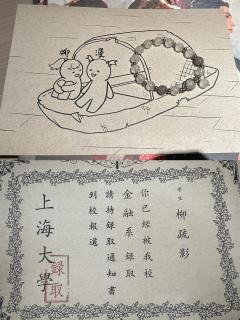 柳 漫
学生 柳疏影
你已經被我校
金融系 録取
請持録取通知書
到校報道
上海大學
録取